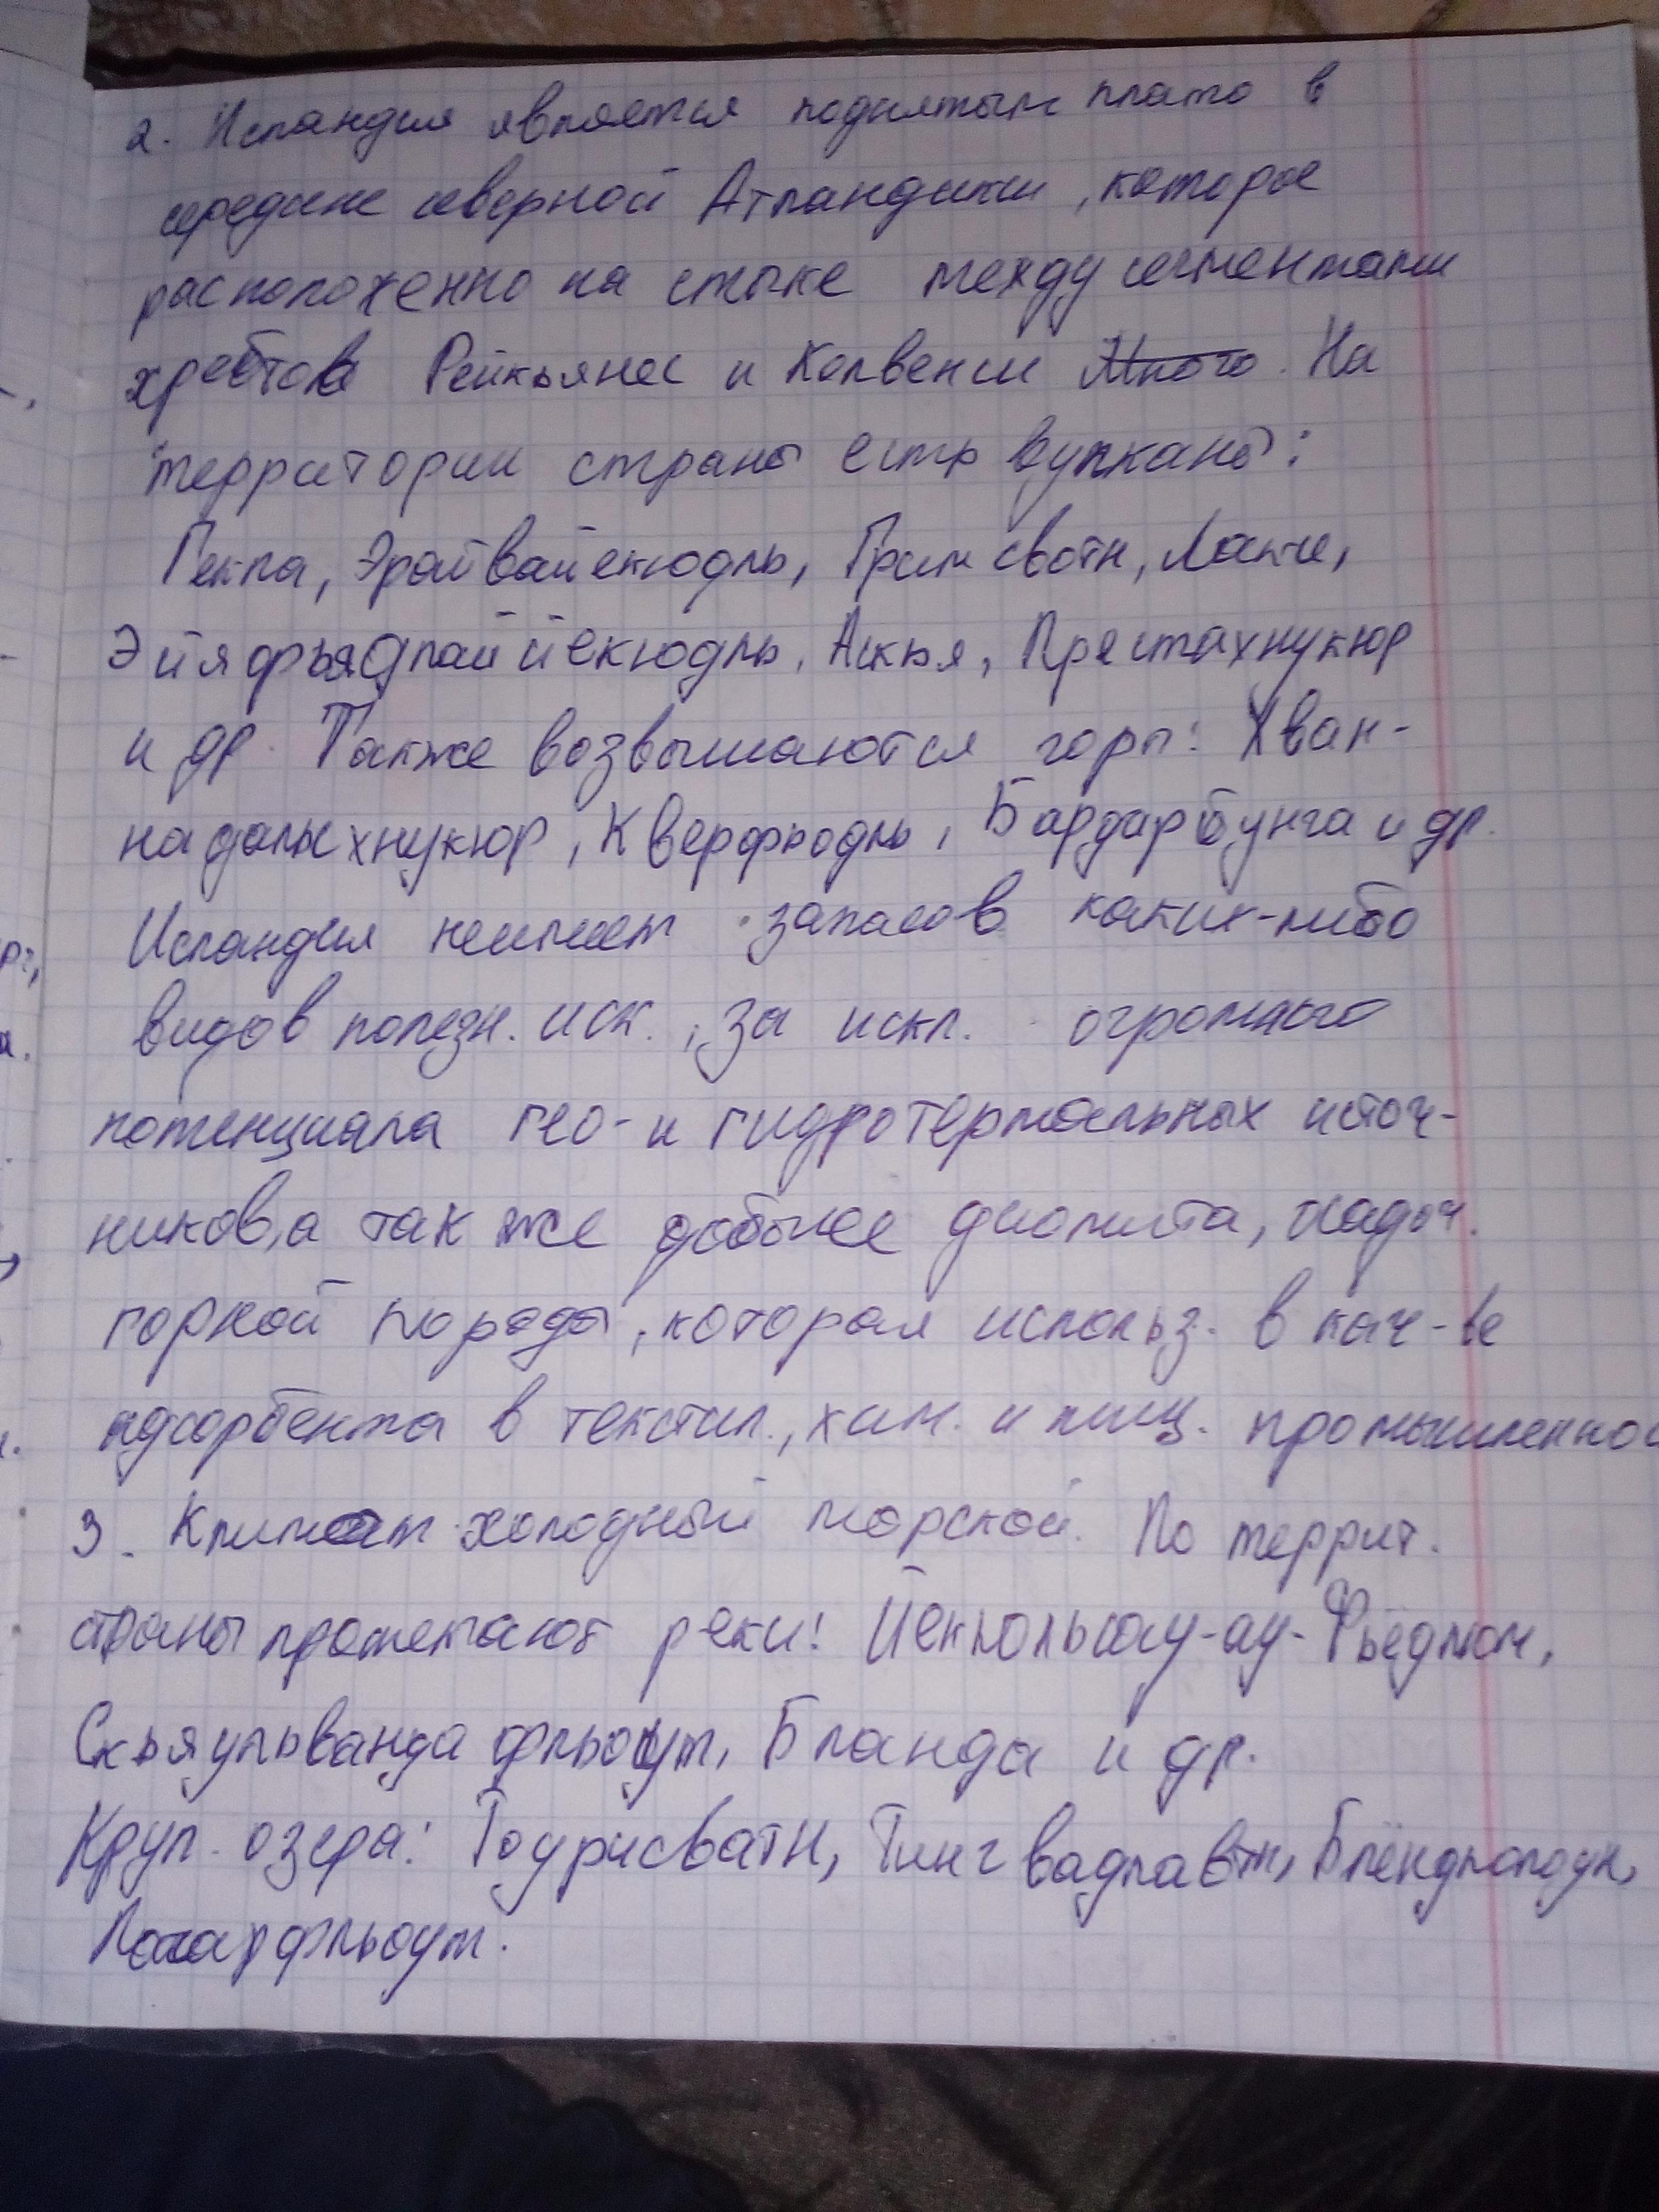 2. Исландия является поднятым плато в
середине северной Атландики, которое
расположенно на стыке между сегментами
хребтов Рейкьянес и Колвенси Много. На
территории страны есть вулканы:
Гекла, Эрайвайекюдль, Гримсвотн, Лаки,
Эйяфьядлайййекюдль, Аскья, Престахнукюр
и др. Также возвышаются горы: Хван-
надальсхнукюр, Кверфьодль, Бардарбунга и др.
Исландия неимеет запасов каких-либо
видов полезн. иск., за искл. огромного
потенциала гео- и гидротермальных источ-
ников, а так же добыче диолита, осадоч.
горной породы, которая использ. в кач-ве
адсорбента в текстил., хим. и пищ. промышленнос
3. Климат холодный морской. По террит.
страны протекают реки: Йёкюльсау-ау-Фьёдлюм,
Скьяульвандафльоут, Бланда и др.
Круп. озера: Тоурисватн, Тингвадлавтн, Блёндлолоун,
Лагарфльоут.